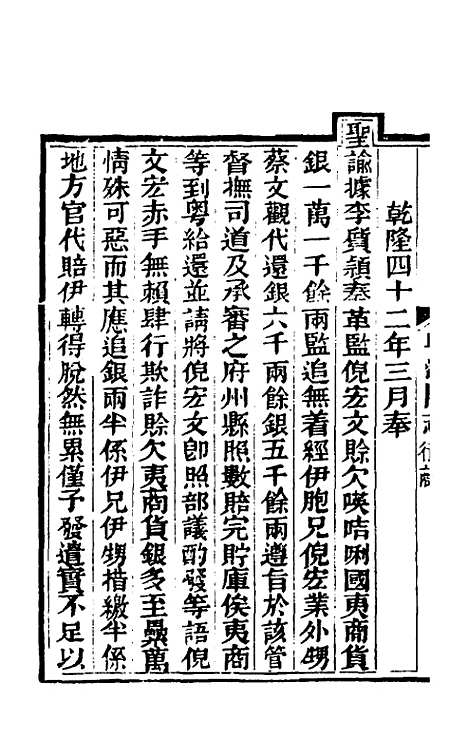 乾隆四十二年三月奉
聖諭據李質穎奏革監倪宏文賒欠𠸄咭唎國夷商貨
銀一萬一千餘兩監追無着經伊胞兄倪宏業外甥
蔡文觀代還銀六千兩餘銀五千餘兩遵旨於該管
督撫司道及承審之府州縣照數賠完貯庫俟夷商
等到粤給還並請將倪宏文卽照部議酌發等語倪
文宏赤手無賴肆行欺詐賒欠夷商貨銀多至纍萬
情殊可惡而其應追銀兩半係伊兄伊甥措繳半係
地方官代賠伊轉得脫然無累僅予發遣實不足以